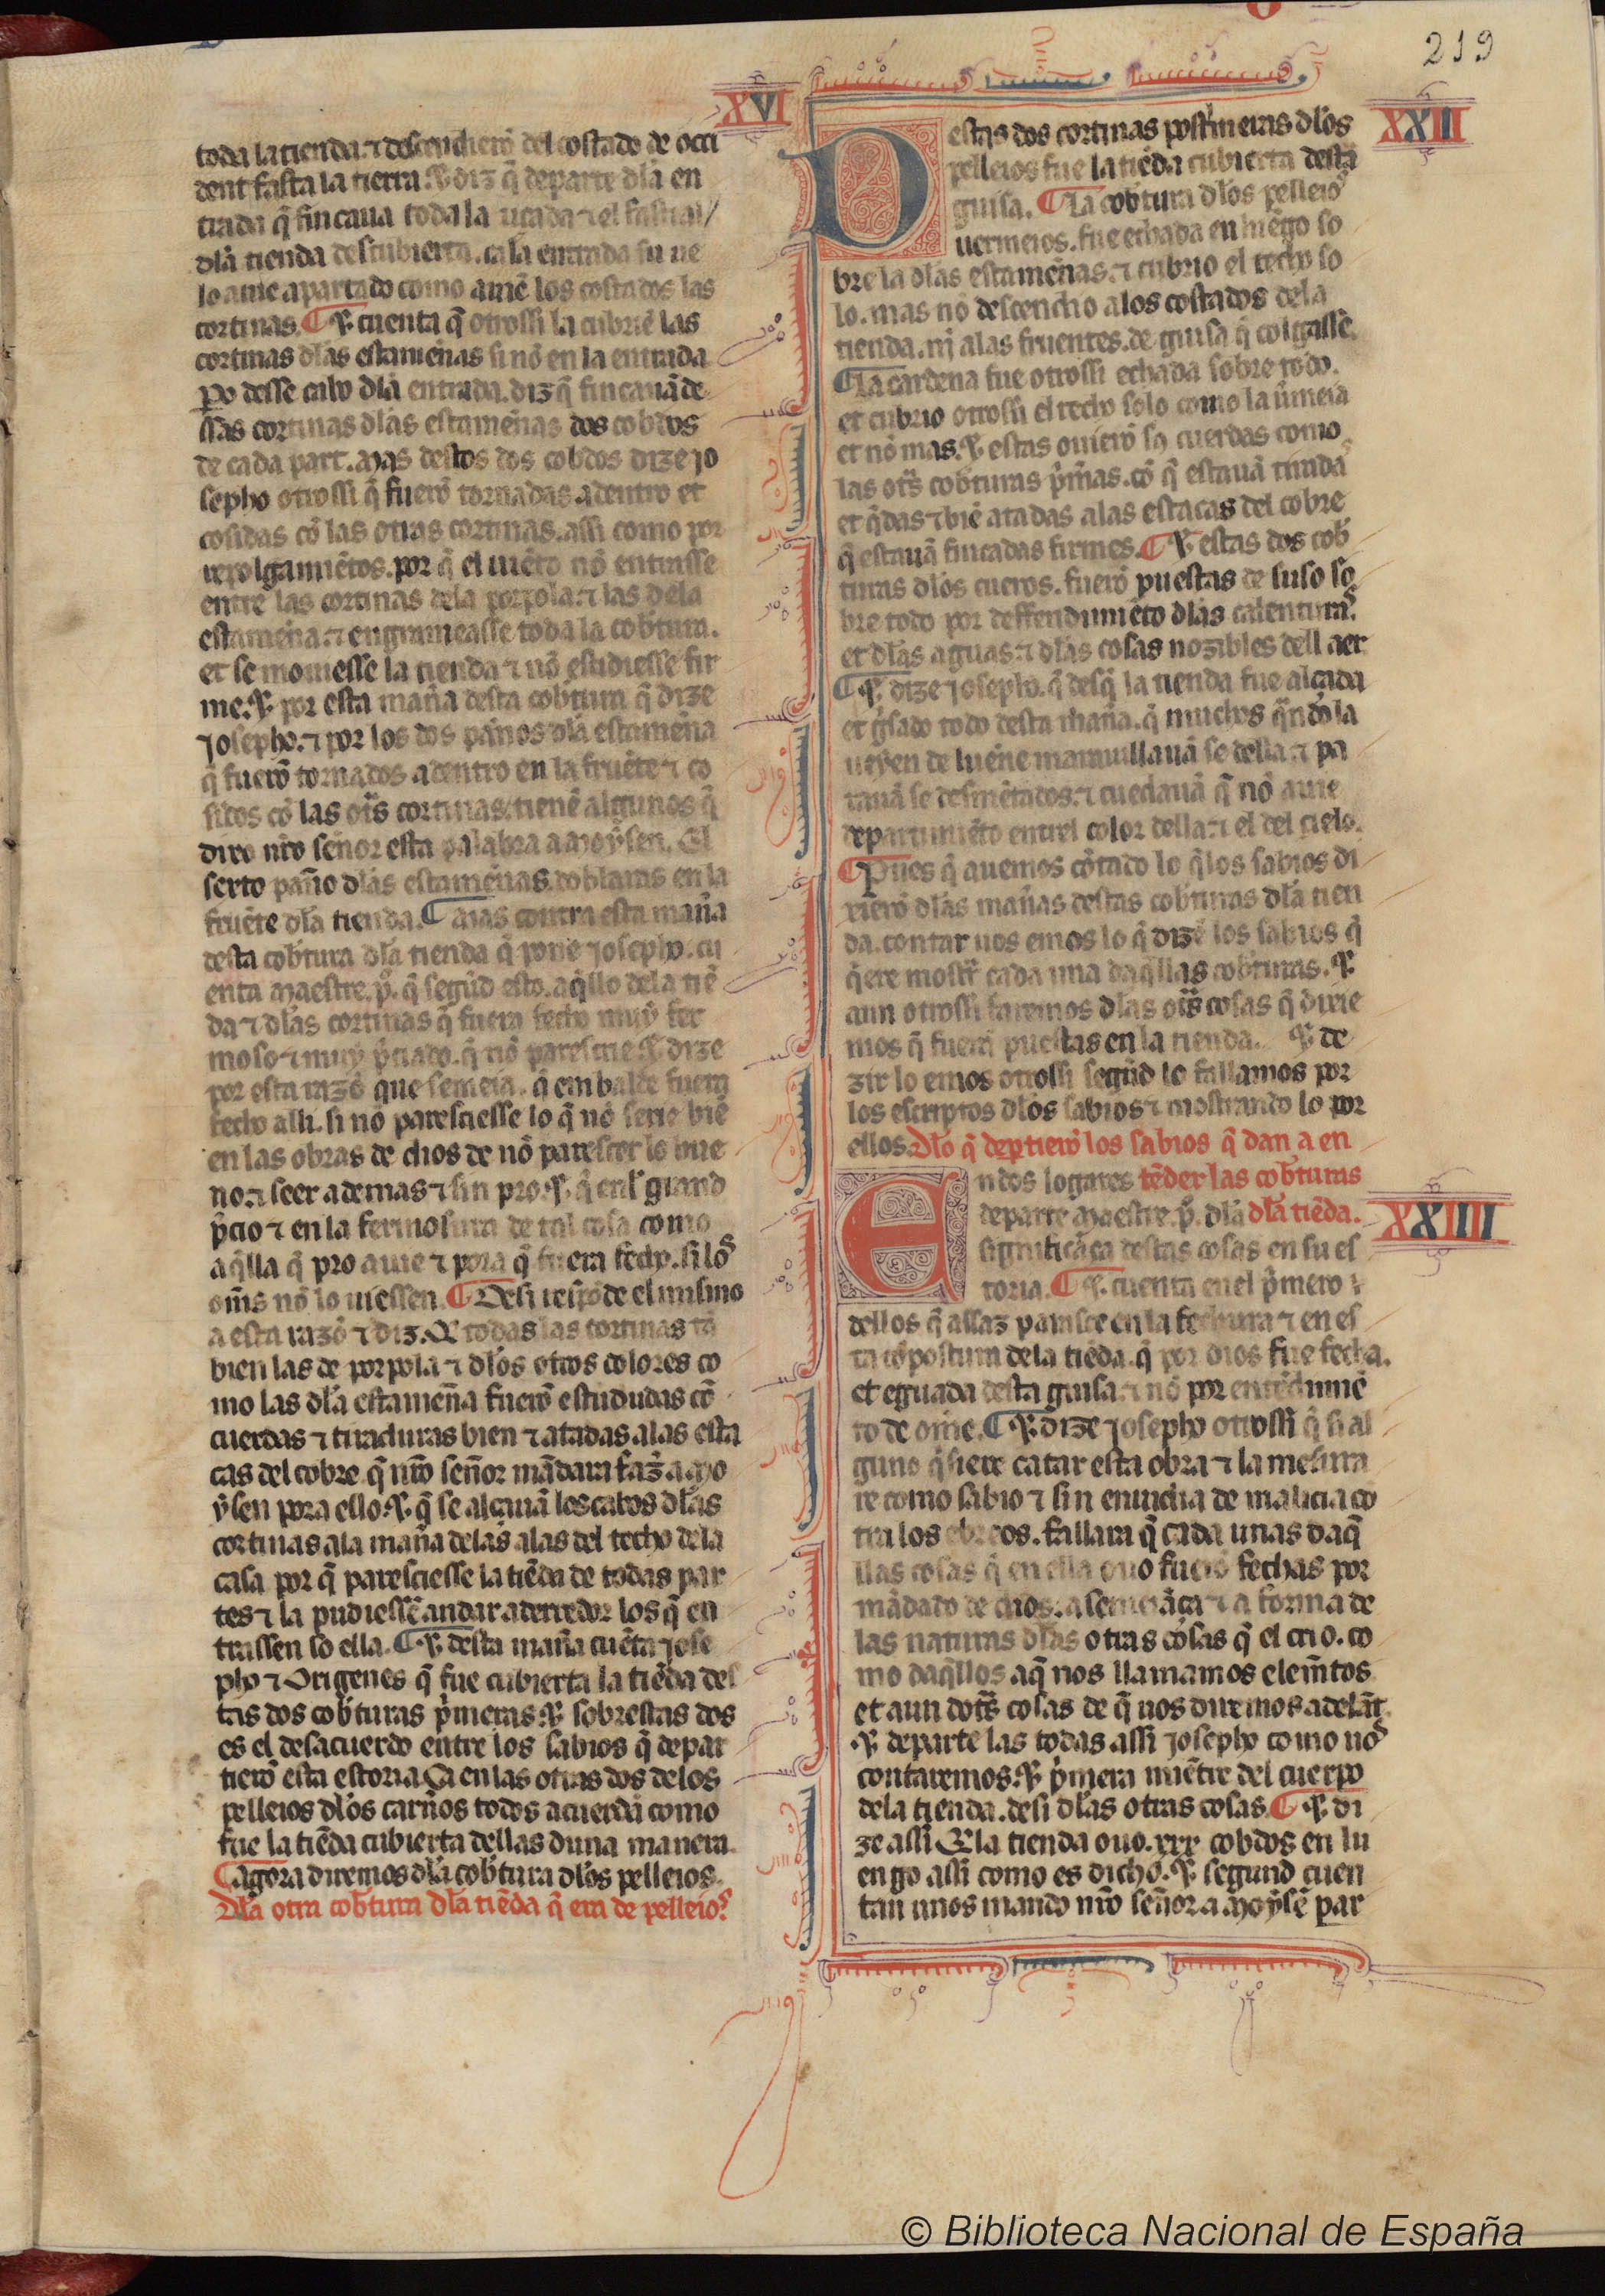 219
XVI
toda la tienda. ⁊ descendierõ del costado de occi
dent fasta la tierra. ⁊ diz q̃ departe dl̃a en
trada q̃ fincaua toda la
dl̃a tienda descubierta. ca la entrada su ue
lo auie apartado como auiẽ los costados las
cortinas. ¶ ⁊ cuenta q̃ otrossi la cubriẽ las
cortinas dl̃as estameñas si nõ en la entrada
Po desse cabo dl̃a entrada. diz q̃ fincauã de
ssas cortinas dl̃as estameñas dos cobdos
de cada part. Mas destos dos cobdos dize Jo
sepho otrossi q̃ fuerõ tornadas adentro et
cosidas cõ las otras cortinas. assi como por
repolgamiẽtos. por q̃ el uiẽto nõ entrasse
entre las cortinas dela porpola. ⁊ las dela
estameña. ⁊ engrameasse toda la cob̃tura.
et se mouiesse la tienda ⁊ nõ estudiesse fir
me. ⁊ por esta mañа desta cob̃tura q̃ dize
Josepho. ⁊ por los dos paños dl̃a estameña
q̃ fuerõ tornados adentro en la fruẽte ⁊ co
sidos cõ las otr̃s cortinas. tienẽ algunos q̃
dixo nr̃o señor esta palabra a Moysen. El
sexto paño dl̃as estameñas. doblaras en la
fruẽte dl̃a tienda. ¶ Mas contra esta maña
desta cob̃tura dl̃a tienda q̃ pone Josepho. cu
enta Maestre. p̃. q̃ segũd esto. aq̃llo dela tiẽ
da ⁊ dl̃as cortinas q̃ fuera fecho muy fer
moso ⁊ muy p̃ciado. q̃ nõ parescrie. ⁊ dize
por esta razõ que semeia. q̃ em balde fuera
fecho alli. si nõ paresciesse lo q̃ nõ serie biẽ
en las obras de dios de nõ parescer lo bue
no. ⁊ seer ademas ⁊ sin pro. ⁊ q̃ enl̃ grand
p̃cio ⁊ en la fermosura de tal cosa como
aq̃lla q̃ pro auie ⁊ pora q̃ fuera fecho. si los
om̃s nõ lo uiessen. ¶ Desi respõde el mismo
a esta razõ ⁊ diz. Q̃ todas las cortinas tã
bien las de porpola ⁊ dl̃os otros colores co
mo las dl̃a estameña fuerõ estendudas cõ
cuerdas ⁊ tiraduras bien ⁊ atadas alas esta
cas del cobre. q̃ nr̃o señor mãdara faz̃ a Mo
ysen pora ello. ⁊ q̃ se alçauã los cabos dl̃as
cortinas ala maña delas alas del techo dela
casa por q̃ paresciesse la tiẽda de todas par
tes ⁊ la pudiessẽ andar aderredor los q̃ en
trassen so ella. ¶ ⁊ desta maña cuẽta Jose
pho ⁊ Origenes q̃ fue cubierta la tiẽda des
tas dos cob̃turas p̃meras. ⁊ sobrestas dos
es el desacuerdo entre los sabios q̃ depar
tierõ esta estoria. Ca en las otras dos delos
pelleios dl̃os carños todos acuerdã como
fue la tiẽda cubierta dellas duna manera.
¶ Agora diremos dl̃a cob̃tura dl̃os pelleios.
Dl̃a otra cob̃tura dl̃a tiẽda q̃ era de pelleios.
XXII
Destas dos cortinas post̃meras dl̃os
pelleios fue la tiẽda cubierta desta
guisa. ¶ La cob̃tura dl̃os pelleios
uermeios. fue echada en luẽgo so
bre la dl̃as estameñas. ⁊ cubrio el techo so
lo. mas nõ descendio alos costados dela
tienda. ni alas fruentes. de guisa q̃ colgasse.
¶ La cardena fue otrossi echada sobre todo.
et cubrio otrossi el techo solo como la ũmeia
et nõ mas. ⁊ estas ouierõ sꝯ cuerdas como
las otr̃s cob̃turas p̃m̃as. cõ q̃ estauã tiradas
et q̃das ⁊ biẽ atadas alas estacas del cobre
q̃ estauã fincadas firmes. ¶ ⁊ estas dos cob̃
turas dl̃os cueros. fuerõ puestas de suso so
bre todo por deffendimiẽto dl̃as calenturas.
et dl̃as aguas. ⁊ dl̃as cosas nozibles dell aer
¶ ⁊ dize Josepho. q̃ desq̃ la tienda fue alçada
et g̃sado todo desta maña. q̃ muchos q̃ndo la
ueyen de lueñe marauillauã se della. ⁊ pa
rauã se desmẽtados. ⁊ cuedauã q̃ nõ auie
departimiẽto entrel color della. ⁊ el del cielo.
¶ Pues q̃ auemos cõtado lo q̃ los sabios di
xierõ dl̃as mañas destas cob̃turas dl̃a tien
da. contar uos emos lo q̃ dizẽ los sabios q̃
q̃ere mostr̃ cada una daq̃llas cob̃turas. ⁊
aun otrossi faremos dl̃as otr̃s cosas q̃ dixie
mos q̃ fuerã puestas en la tienda. ⁊ de
zir lo emos otrossi segũd lo fallamos por
los escriptos dl̃os sabios ⁊ mostrando lo por
ellos. Dl̃o q̃ dep̃tierõ los sabios q̃ dan a en
tẽder las cob̃turas
dl̃a tiẽda.
XXIIII
En dos logares
departe Maestre. p̃. dl̃a
significãça destas cosas en su es
toria. ¶ ⁊ cuenta en el p̃mero
dellos q̃ assaz paresce en la fechura ⁊ en es
ta cõpostura dela tiẽda. q̃ por dios fue fecha.
et eguada desta guisa. ⁊ nõ por entẽdimiẽ
to de om̃e. ¶ ⁊ dize Josepho otrossi q̃ si al
guno q̃siere catar esta obra ⁊ la mesura
re como sabio ⁊ sin enuidia de malicia cõ
tra los ebreos. fallara q̃ cada unas daq̃
llas cosas q̃ en ella ouo fuerõ fechas por
mãdado de dios. a semeiãça ⁊ a forma de
las naturas dl̃as otras cosas q̃ el crio. co
mo daq̃llos aq̃ nos llamamos elem̃tos
et aun dotr̃s cosas de q̃ nos diremos adelãt.
⁊ departe las todas assi Josepho como nos
contaremos. ⁊ p̃mera miẽtre del cuerpo
dela tienda. desi dl̃as otras cosas. ¶ ⁊ di
ze assi. Q̃ la tienda ouo. xxx. cobdos en lu
engo assi como es dicho. ⁊ segund cuen
tan unos mando nr̃o señor a Moysẽ par
© Biblioteca Nacional de España